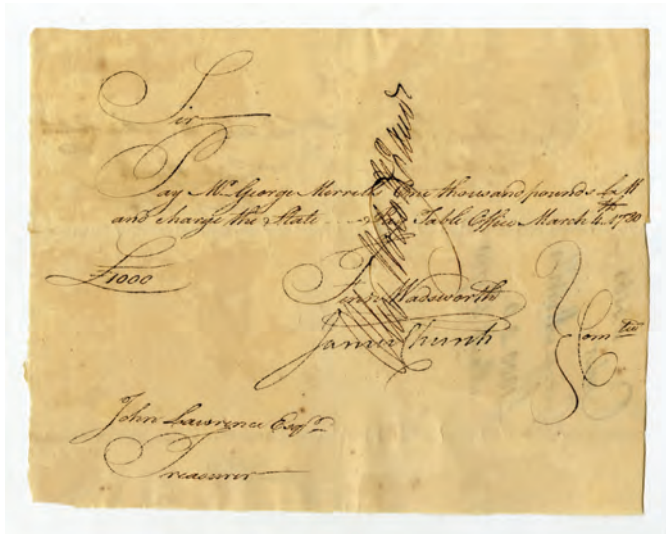 Sir
Pay Mr. George Merrells One thousand pounds La M
and charge the State Pay Table Office March 4th 1780
£1000
Fenn Wadsworth
James Church
Comtee
John Lawrence Esqr
Treasurer